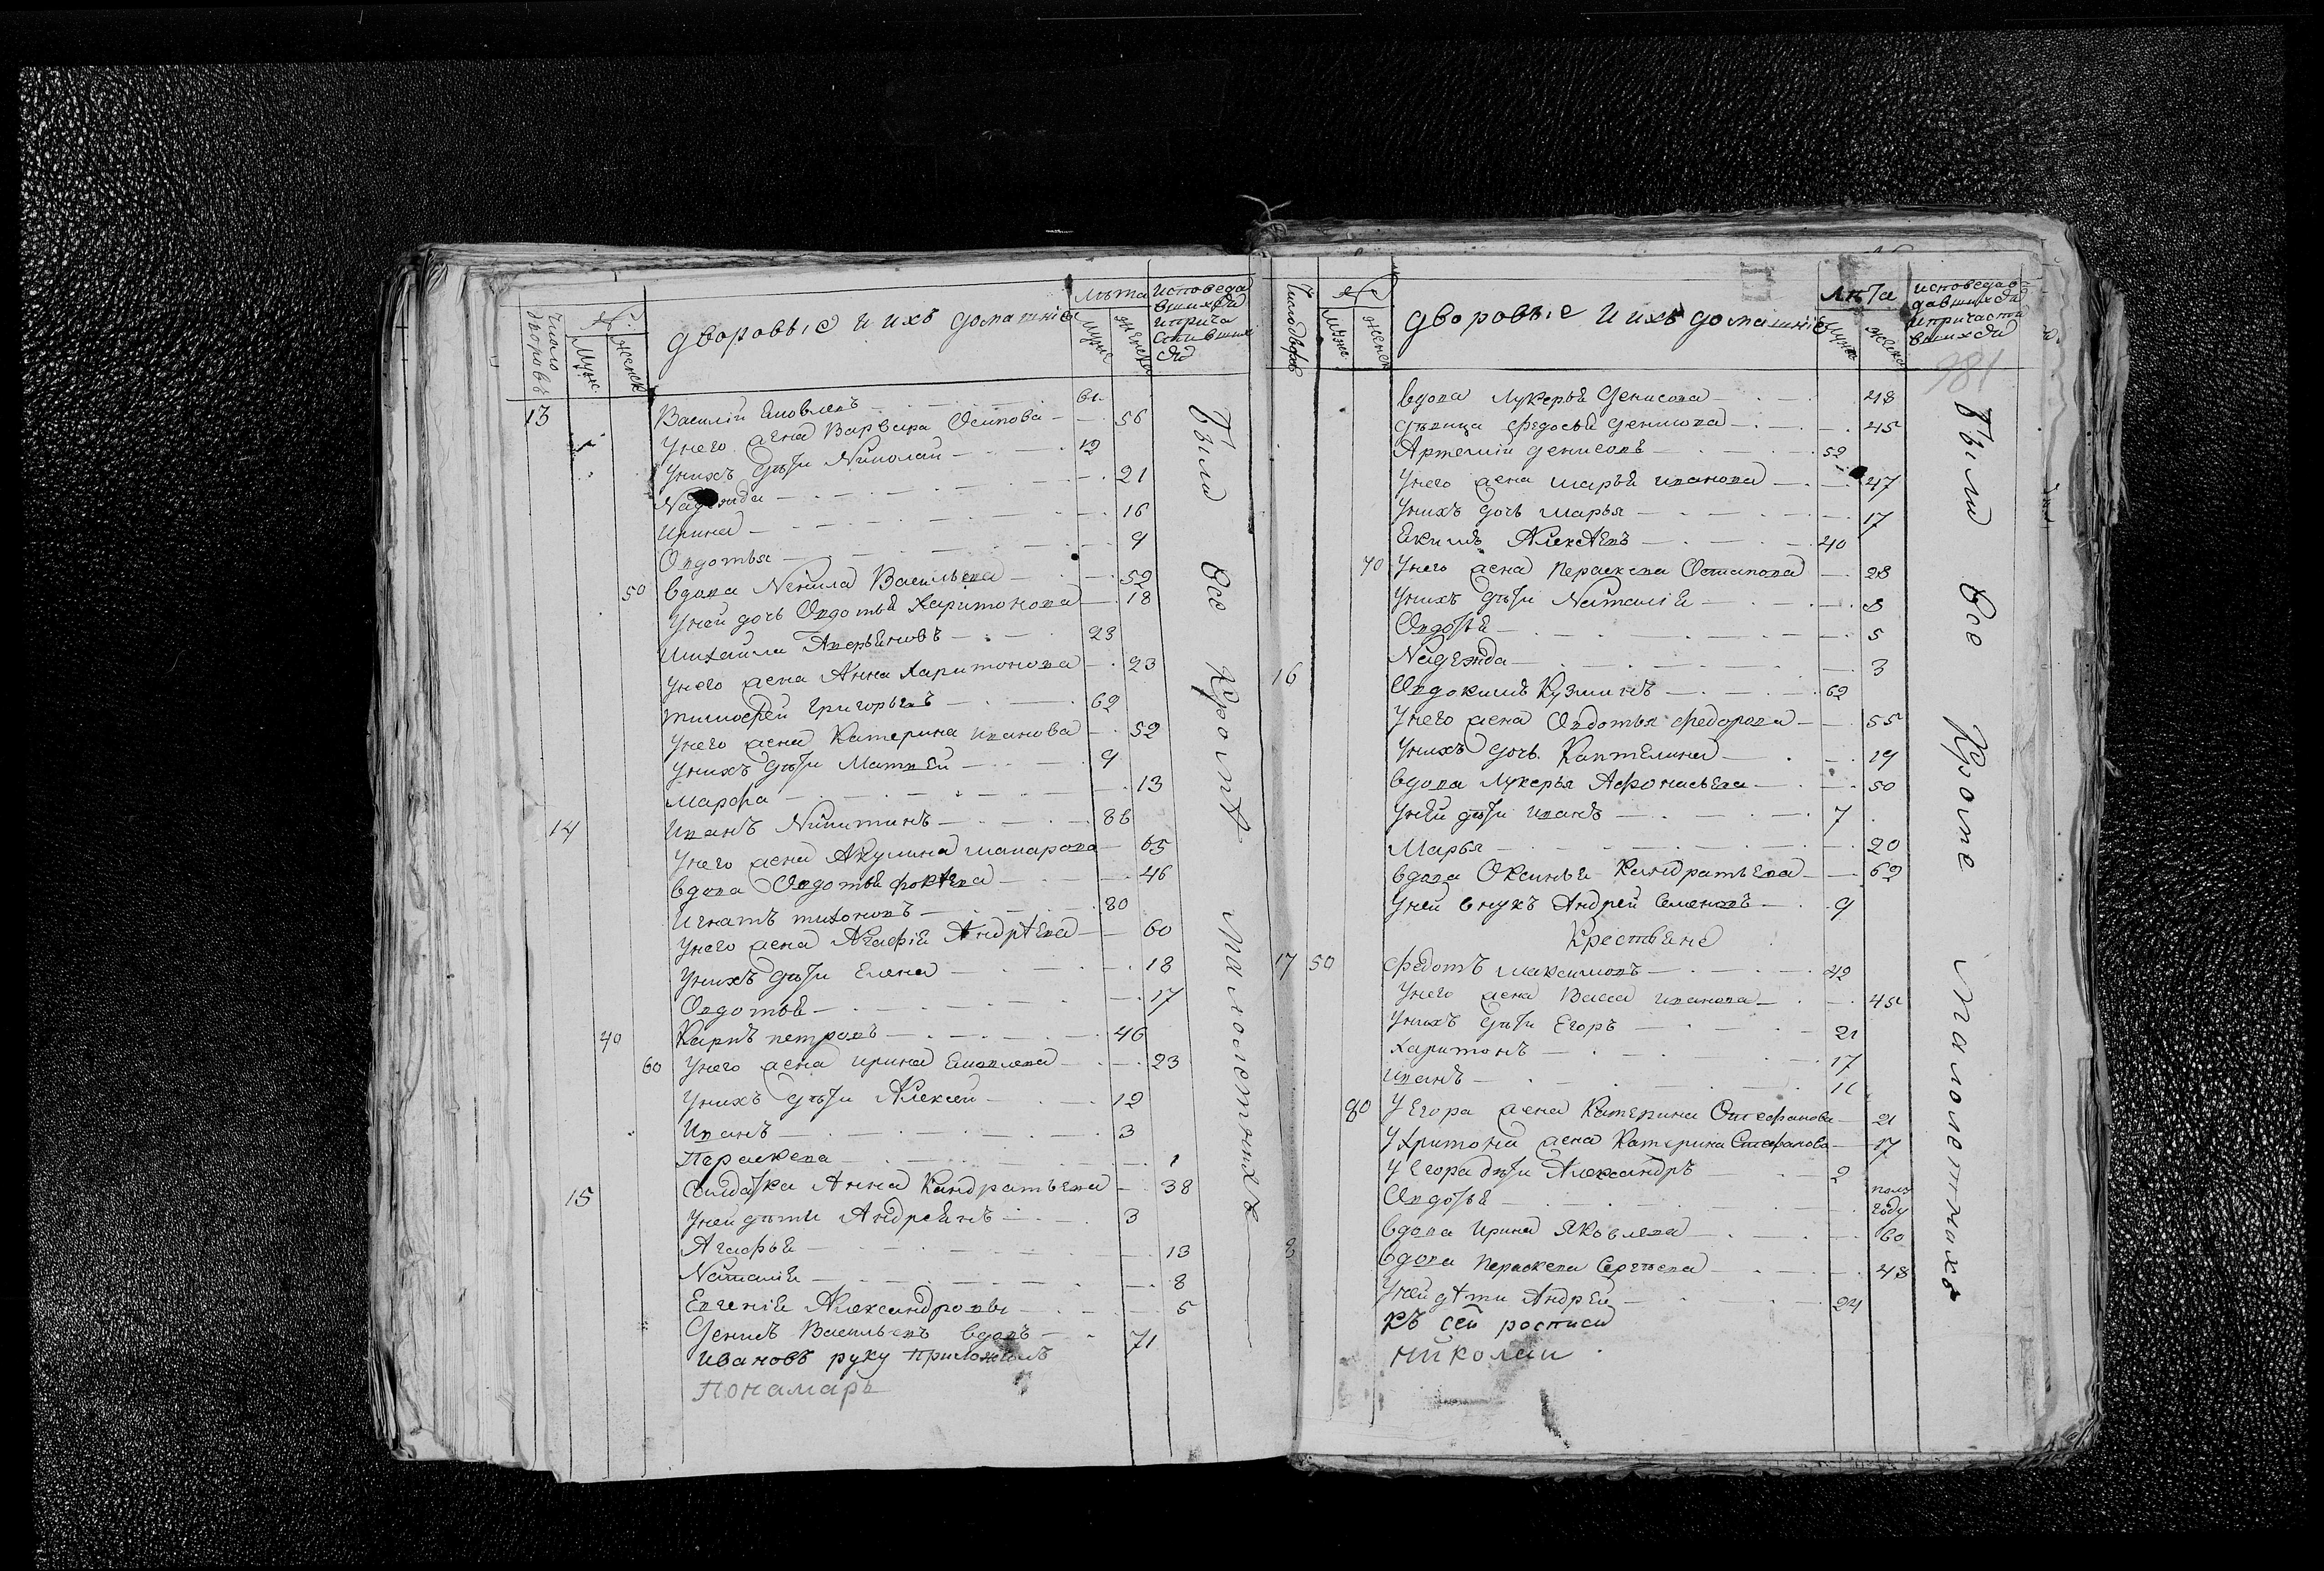 число дворовъ
№.
муж.
женск
дворовые и ихъ домашніе
лѣта
муж
женска
исповеда
вшихся
и прича
стившие
ся
13 Василій Яковлевъ 61
У него жена Варвара Осипова 56
У нихъ дѣти Николай 12
Надежда 21
Ирина 16
Овдотья 9
50 вдова Ненила Васильева 52
У ней дочь Овдотья Харитонова 18
Михайла Аверьяновъ 23
У него жена Анна Харитонова 23
Тимофей Григорьевъ 62
У него жена Катерина Иванова 52
У нихъ дѣти Матвей 9
Марфа 13
14 Иванъ Никитинъ 86
У него жена Акулина Макарова 65
вдова Овдотья Фокѣева 46
Игнатъ Тихоновъ 80
У него жена Агафія Андрѣева 60
У нихъ дѣти Елена 18
Овдотья 17
40 Карпъ Петровъ 46
60 У него жена Ирина Яковлева 23
У нихъ дѣти Алексей 12
Иванъ 3
Параскева 1
15 Солдатка Анна Кандратьева 38
У ней дѣти Андреянъ 3
Агафья 13
Наталія 8
Евгенія Александровы 5
Денисъ Васильевъ вдовъ 71
Ивановъ руку приложилъ
Понамарь
Были все кромѣ малолетнихъ
Число дворовъ
№
Муж.
женск
дворовые и ихъ домашніе
лѣта
муж
женск
исповедав
давшихся
и причасти
вшихся
981
вдова Лукерья Денисова 48
дѣвица Федосья Денисова 45
Артемій Денисовъ 52
У него жена Марья Иванова 47
У нихъ дочь Марья 17
Екимъ Алексѣевъ 40
70 У него жена Параскева Остапова 28
У нихъ дѣти Наталія 8
Овдотья 5
Надежда 3
16 Овдокимъ Кузминъ 62
У него жена Овдотья Федорова 55
У нихъ дочь Каптелина 19
вдова Лукерья Афонасьева 50
У ней дѣти Иванъ 7
Марья 20
вдова Оксинья Кандратьева 62
У ней внукъ Андрей Семеновъ 9
Крестьяне
17 50 Федотъ Максимовъ 42
У него жена Васса Иванова 45
У нихъ дѣти Егоръ 21
Харитонъ 17
Иванъ 11
80 У Егора жена Катерина Стефанова 21
У Хритона жена Катерина Стефанова 17
У Егора дѣти Александръ 2
Овдотья полъ году
вдова Ирина Яковлева 60
8 вдова Параскева Сергѣева 48
У ней дѣти Андрей 24
Къ сей росписи
Николаи
Были все кроме малолетнихъ